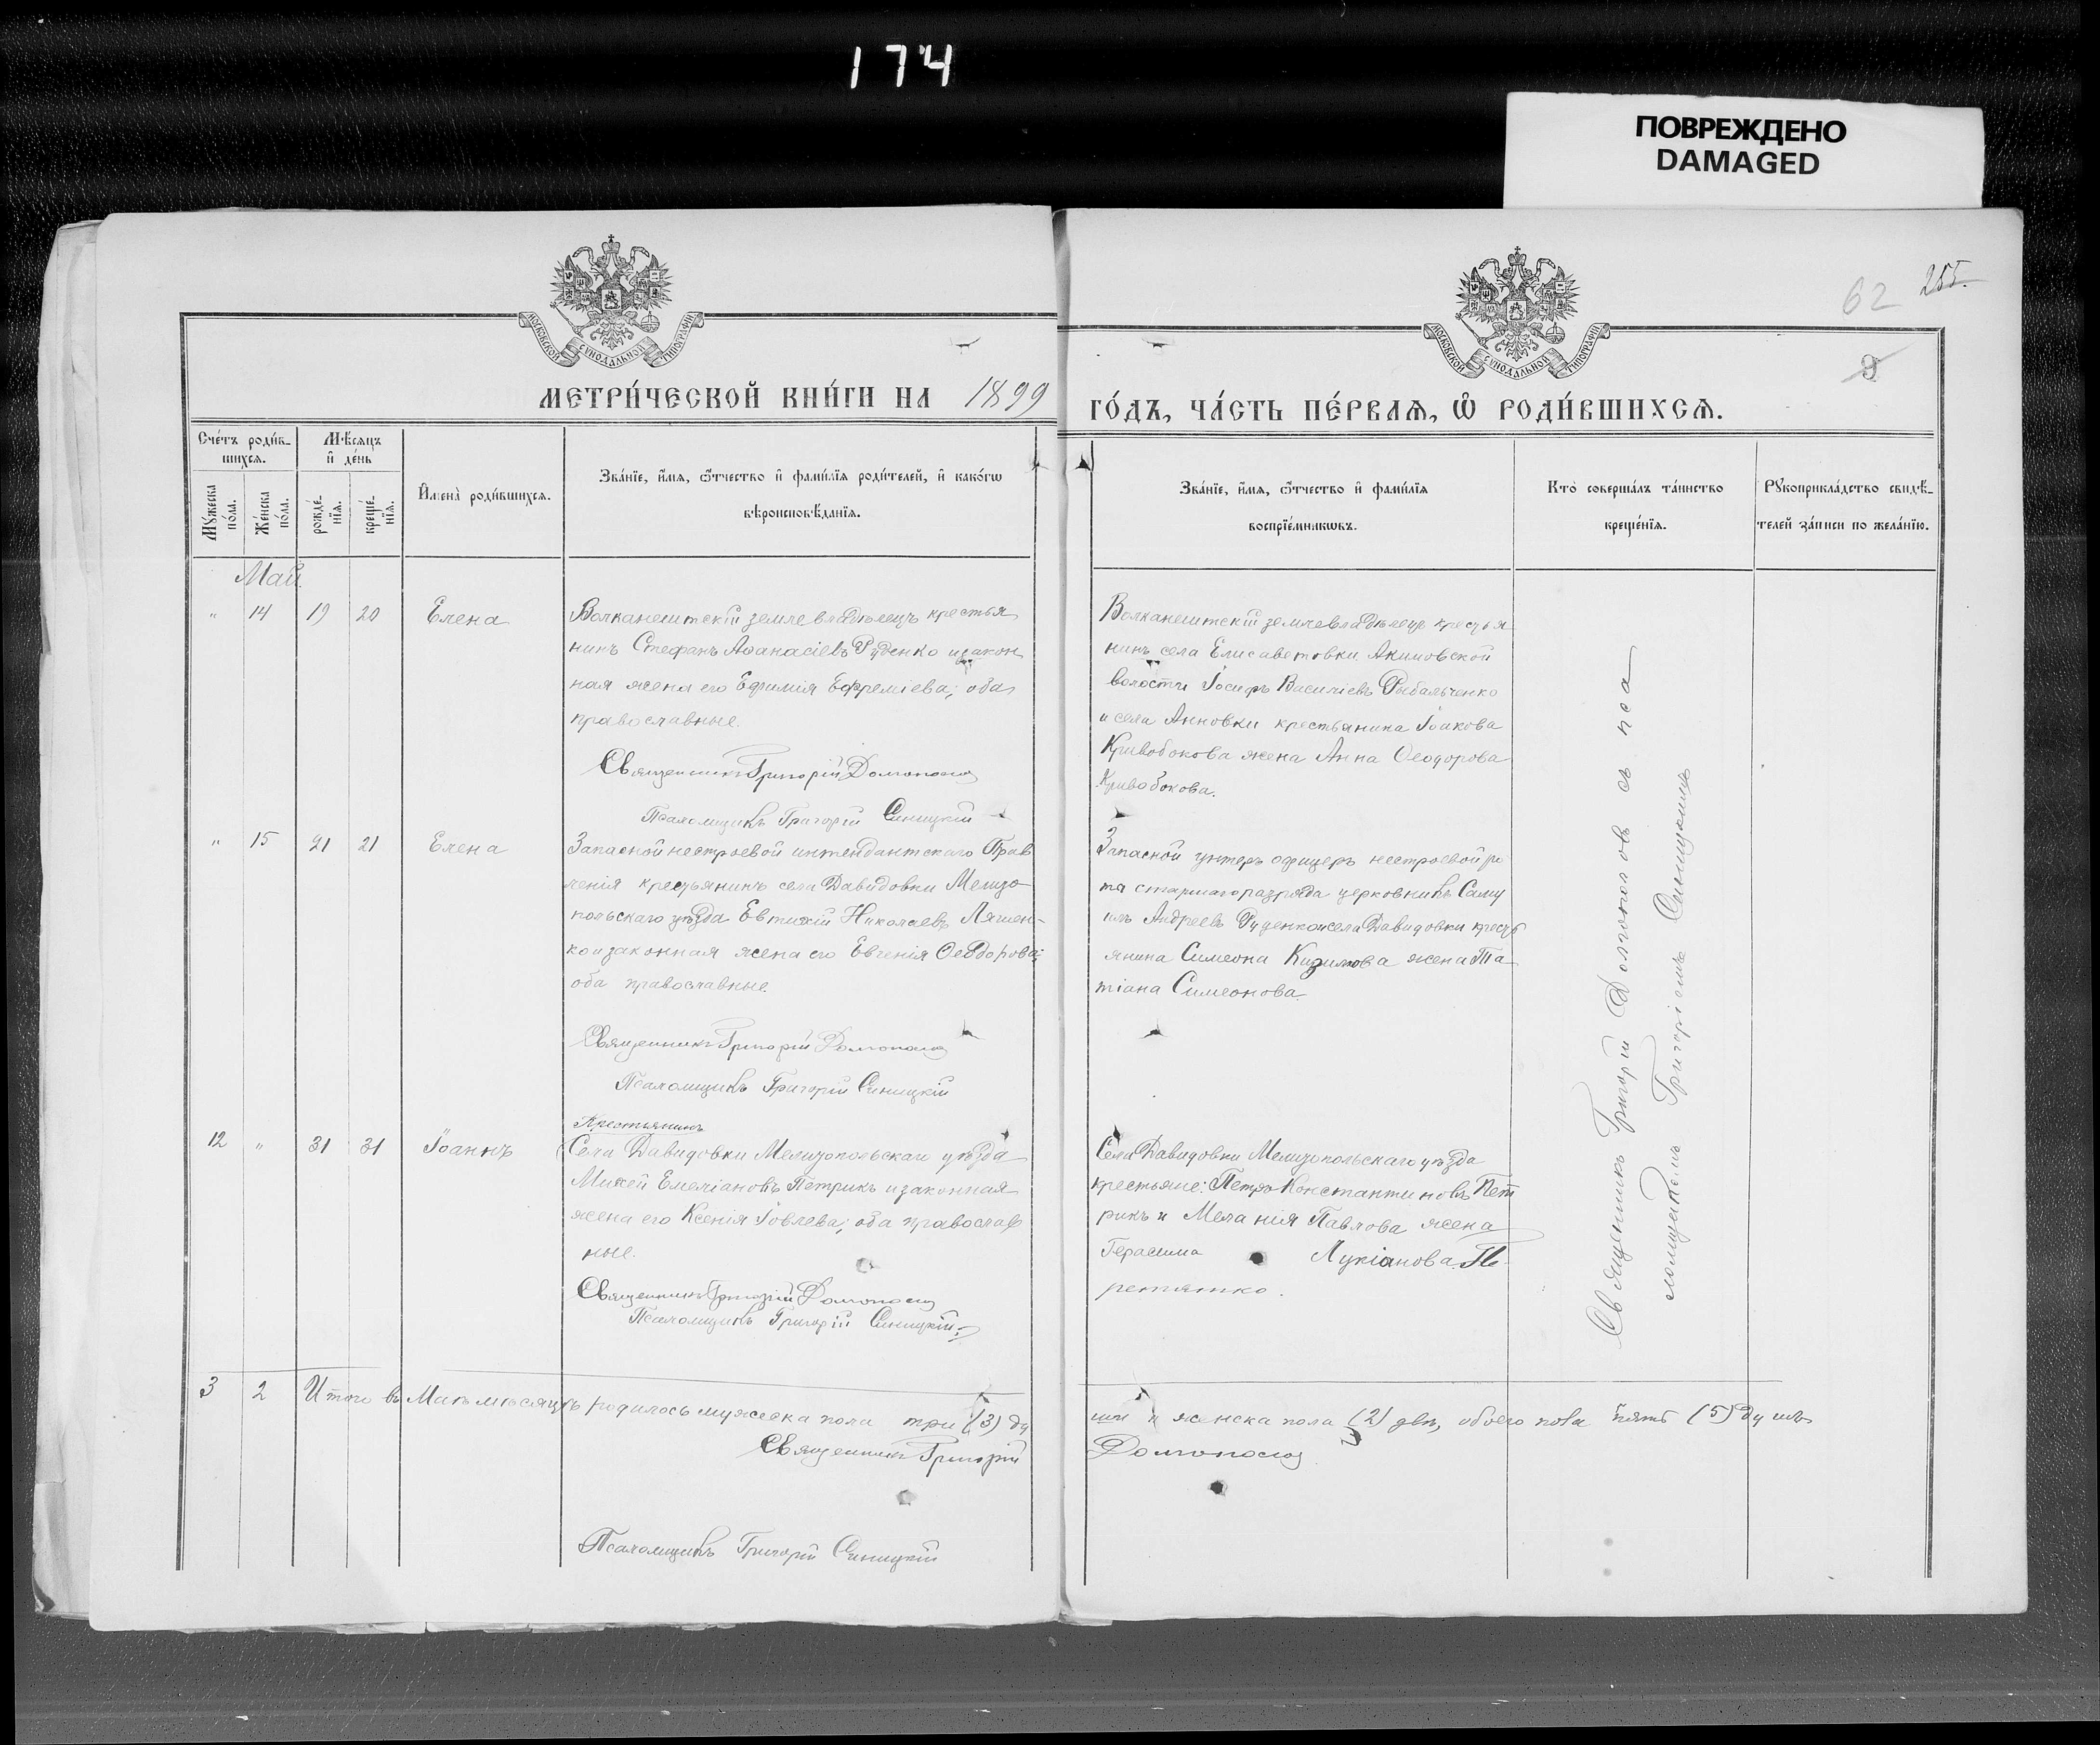 174
ПОВРЕЖДЕНО
DAMAGED
МОСКОВСКОЙ СѴНОДАЛЬНОЙ ТИПОГРАФІИ
МОСКОВСКОЙ СѴНОДАЛЬНОЙ ТИПОГРАФІИ
62 255.
9
МЕТРИ́ЧЕСКОЙ КНИ́ГИ НА 1899
ГО́ДЪ, ЧА́СТЬ ПЕ́РВАѦ, Ѡ҆ РОДИ́ВШИХСѦ.
Сче́тъ роди́в-
шихсѧ.
Мꙋ́жеска по́ла.
Же́нска по́ла.
Мѣ́сѧцъ
и҆ де́нь
рожде́-
нїѧ.
креще́-
нїѧ.
И҆мена̀ роди́вшихсѧ.
Зва́нїе, и҆́мѧ, ѻ҆́тчество и҆ фами́лїѧ роди́телей, и҆ како́гѡ
вѣроисповѣ́данїѧ.
Зва́нїе, и҆́мѧ, ѻ҆́тчество и҆ фами́лїѧ
воспрїе́мникѡвъ.
Кто̀ соверша́лъ та́инство
креще́нїѧ.
Рꙋкоприкла́дство свидѣ́-
телей за́писи по жела́нїю.
Май.
" 14 19 20 Елена
Волканештскій землевладѣлецъ крестья
нинъ Стефанъ Аѳанасіевъ Руденко и закон
ная жена его Евфимія Ефреміева; оба
православные.
Священникъ Григорій
Псаломщикъ Григорій Синицкій
Волканештскій землевладѣлецъ крестья
нинъ села Елисаветовки Акимовской
волости Іосифъ Василіевъ Рыбальченко
и села Анновки крестьянина Іоакова
Кривобокова жена Анна Ѳеодорова
Кривобокова.
" 15 21 21 Елена
Запасной нестроевой интендантскаго Прав
ленія крестьянинъ села Давидовки Мелито
польскаго уѣзда Евтихій Николаевъ Ляшен-
ко и законная жена его Евгенія Ѳеодорова;
оба православные.
Священникъ Григорій
Псаломщикъ Григорій Синицкій
Запасной унтеръ офицеръ нестроевой ро
та старшаго разряда церковникъ Саму
илъ Андреевъ Руденко и села Давидовки крестъ
янина Симеона жена Та
тіана Симеонова.
12 " 31 31 Іоаннъ
Крестьянинъ
Села Давидовки Мелитопольскаго уѣзда
Михей Емеліановъ Петрикъ и законная
жена его Ксенія Іовлева; оба православ
ные.
Священникъ Григорій
Псаломщикъ Григорій Синицкій
Села Давидовки Мелитопольскаго уѣзда
крестьяне: Петръ Константиновъ Пет
рикъ и Меланія Павлова жена
Герасима Лукіанова Пе-
ретятко.
Священникъ Григорій съ пса
ломщикомъ Григоріемъ Синицкимъ
3 2 Итого въ Маѣ мѣсяцѣ родилось мужеска пола три (3) ду
ши и женска пола (2) двѣ, обоего пола пять (5) душъ
Священникъ Григорій
Псаломщикъ Григорій Синицкій